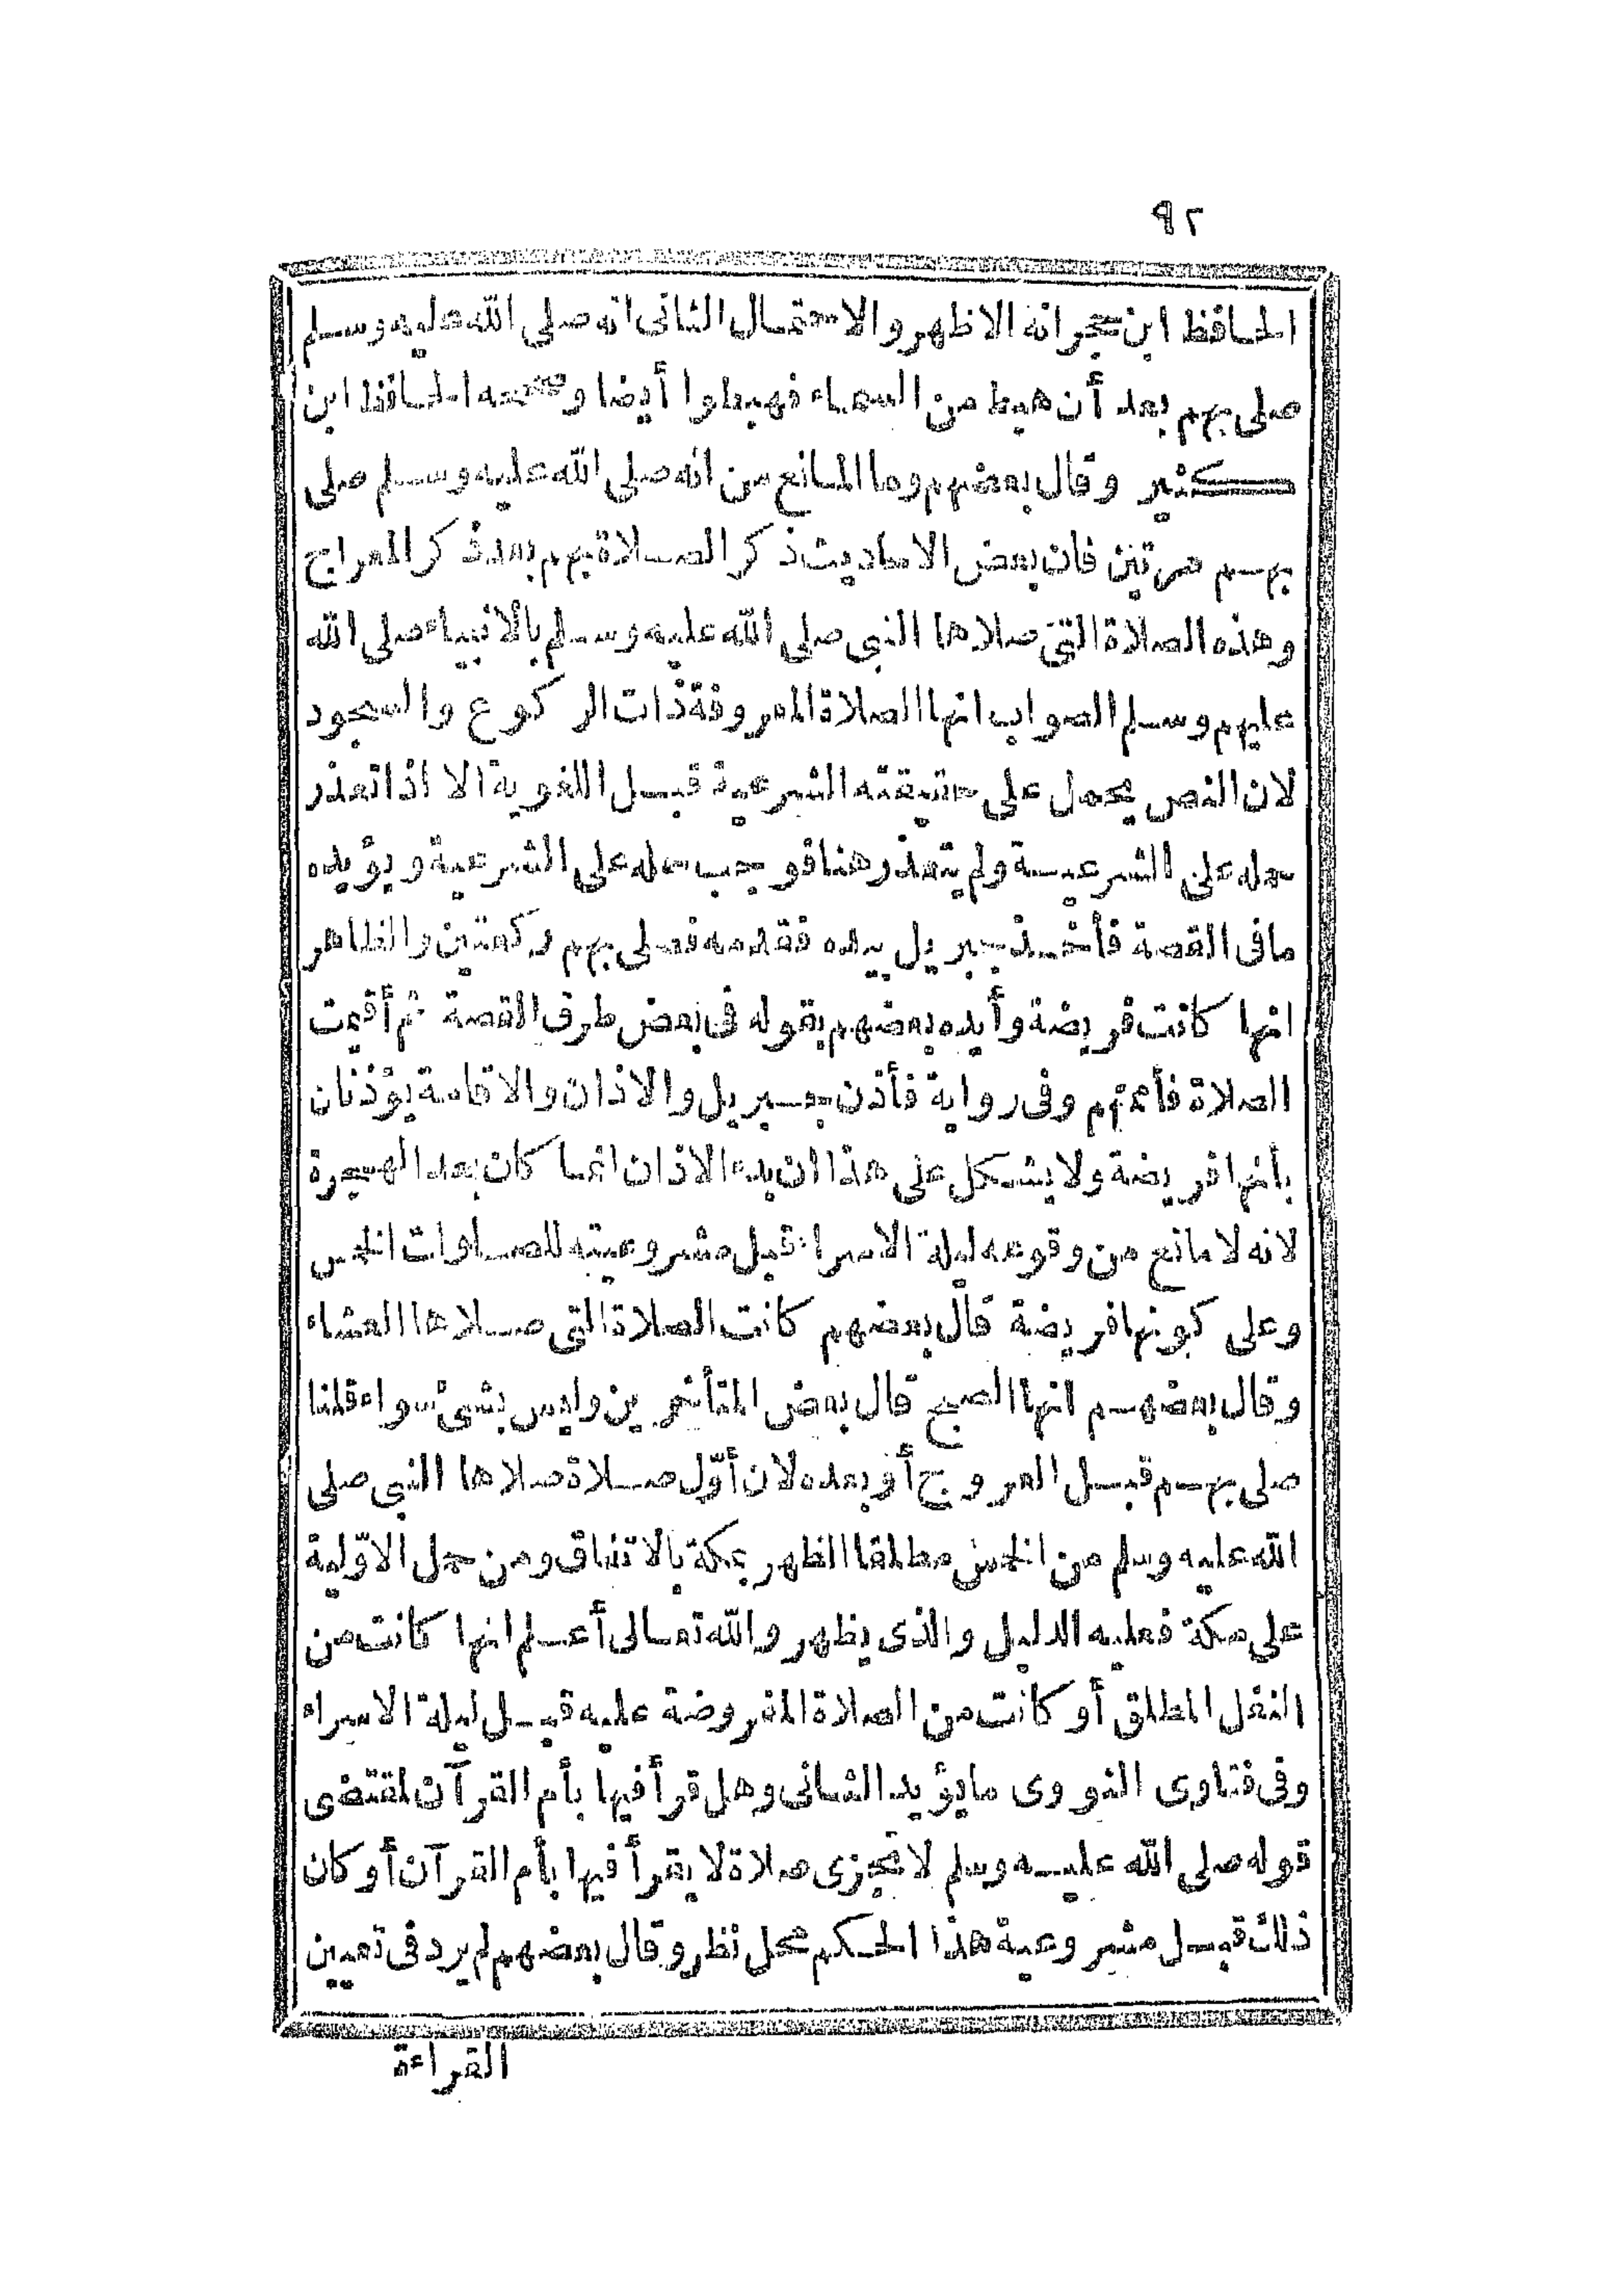 ٩٢
الحافظ ابن حجر انه الاظهر والاحتمال الثانى انه صلى الله عليه وسلم
صلى بهم بعد أن هبط من السماء فهبطوا أيضا وصححه الحافظ ابن
كثير وقال بعضهم وما المانع من انه صلى الله عليه وسلم صلى
بهم مرتين فان بعض الاحاديث ذكر الصلاة بهم بعد ذكر المعراج
وهذه الصلاة التى صلاها النبى صلى الله عليه وسلم بالانبياء صلى الله
عليهم وسلم الصواب انها الصلاة المعروفة ذات الركوع والسجود
لان النص يحمل على حقيقته الشرعية قبل اللغوية الا اذا تعذر
حمله على الشرعية ولم يتعذر هنا فوجب حمله على الشرعية ويؤيده
مافى القصة فأخذ جبريل بيده فقدمه فصلى بهم ركعتين والظاهر
انها كانت فريضة وأيده بعضهم بقوله فى بعض طرق القصة ثم أقيمت
الصلاة فأممتهم وفى رواية فأذن جبريل والاذان والاقامة يؤذنان
بأنها فريضة ولا يشكل على هذا ان بدء الاذان انما كان بعد الهجرة
لانه لا مانع من وقوعه ليلة الاسراء قبل مشروعيته للصلوات الخمس
وعلى كونها فريضة قال بعضهم كانت الصلاة التى صلاها العشاء
وقال بعضهم انها الصبح قال بعض المتأخرين وليس بشئ سواء قلنا
صلى بهم قبل العروج أو بعده لان أوّل صلاة صلاها النبى صلى
الله عليه وسلم من الخمس مطلقا الظهر بمكة بالاتفاق ومن حمل الاوّلية
على مكة فعليه الدليل والذى يظهر والله تعالى أعلم انها كانت من
النفل المطلق أو كانت من الصلاة المفروضة عليه قبل ليلة الاسراء
وفى فتاوى النووى ما يؤيد الثانى وهل قرأ فيها بأم القرآن لمقتضى
قوله صلى الله عليه وسلم لا تجزى صلاة لا يقرأ فيها بأم القرآن أو كان
ذلك قبل مشروعية هذا الحكم محل نظر وقال بعضهم لم يرد فى تعيين
القراءة